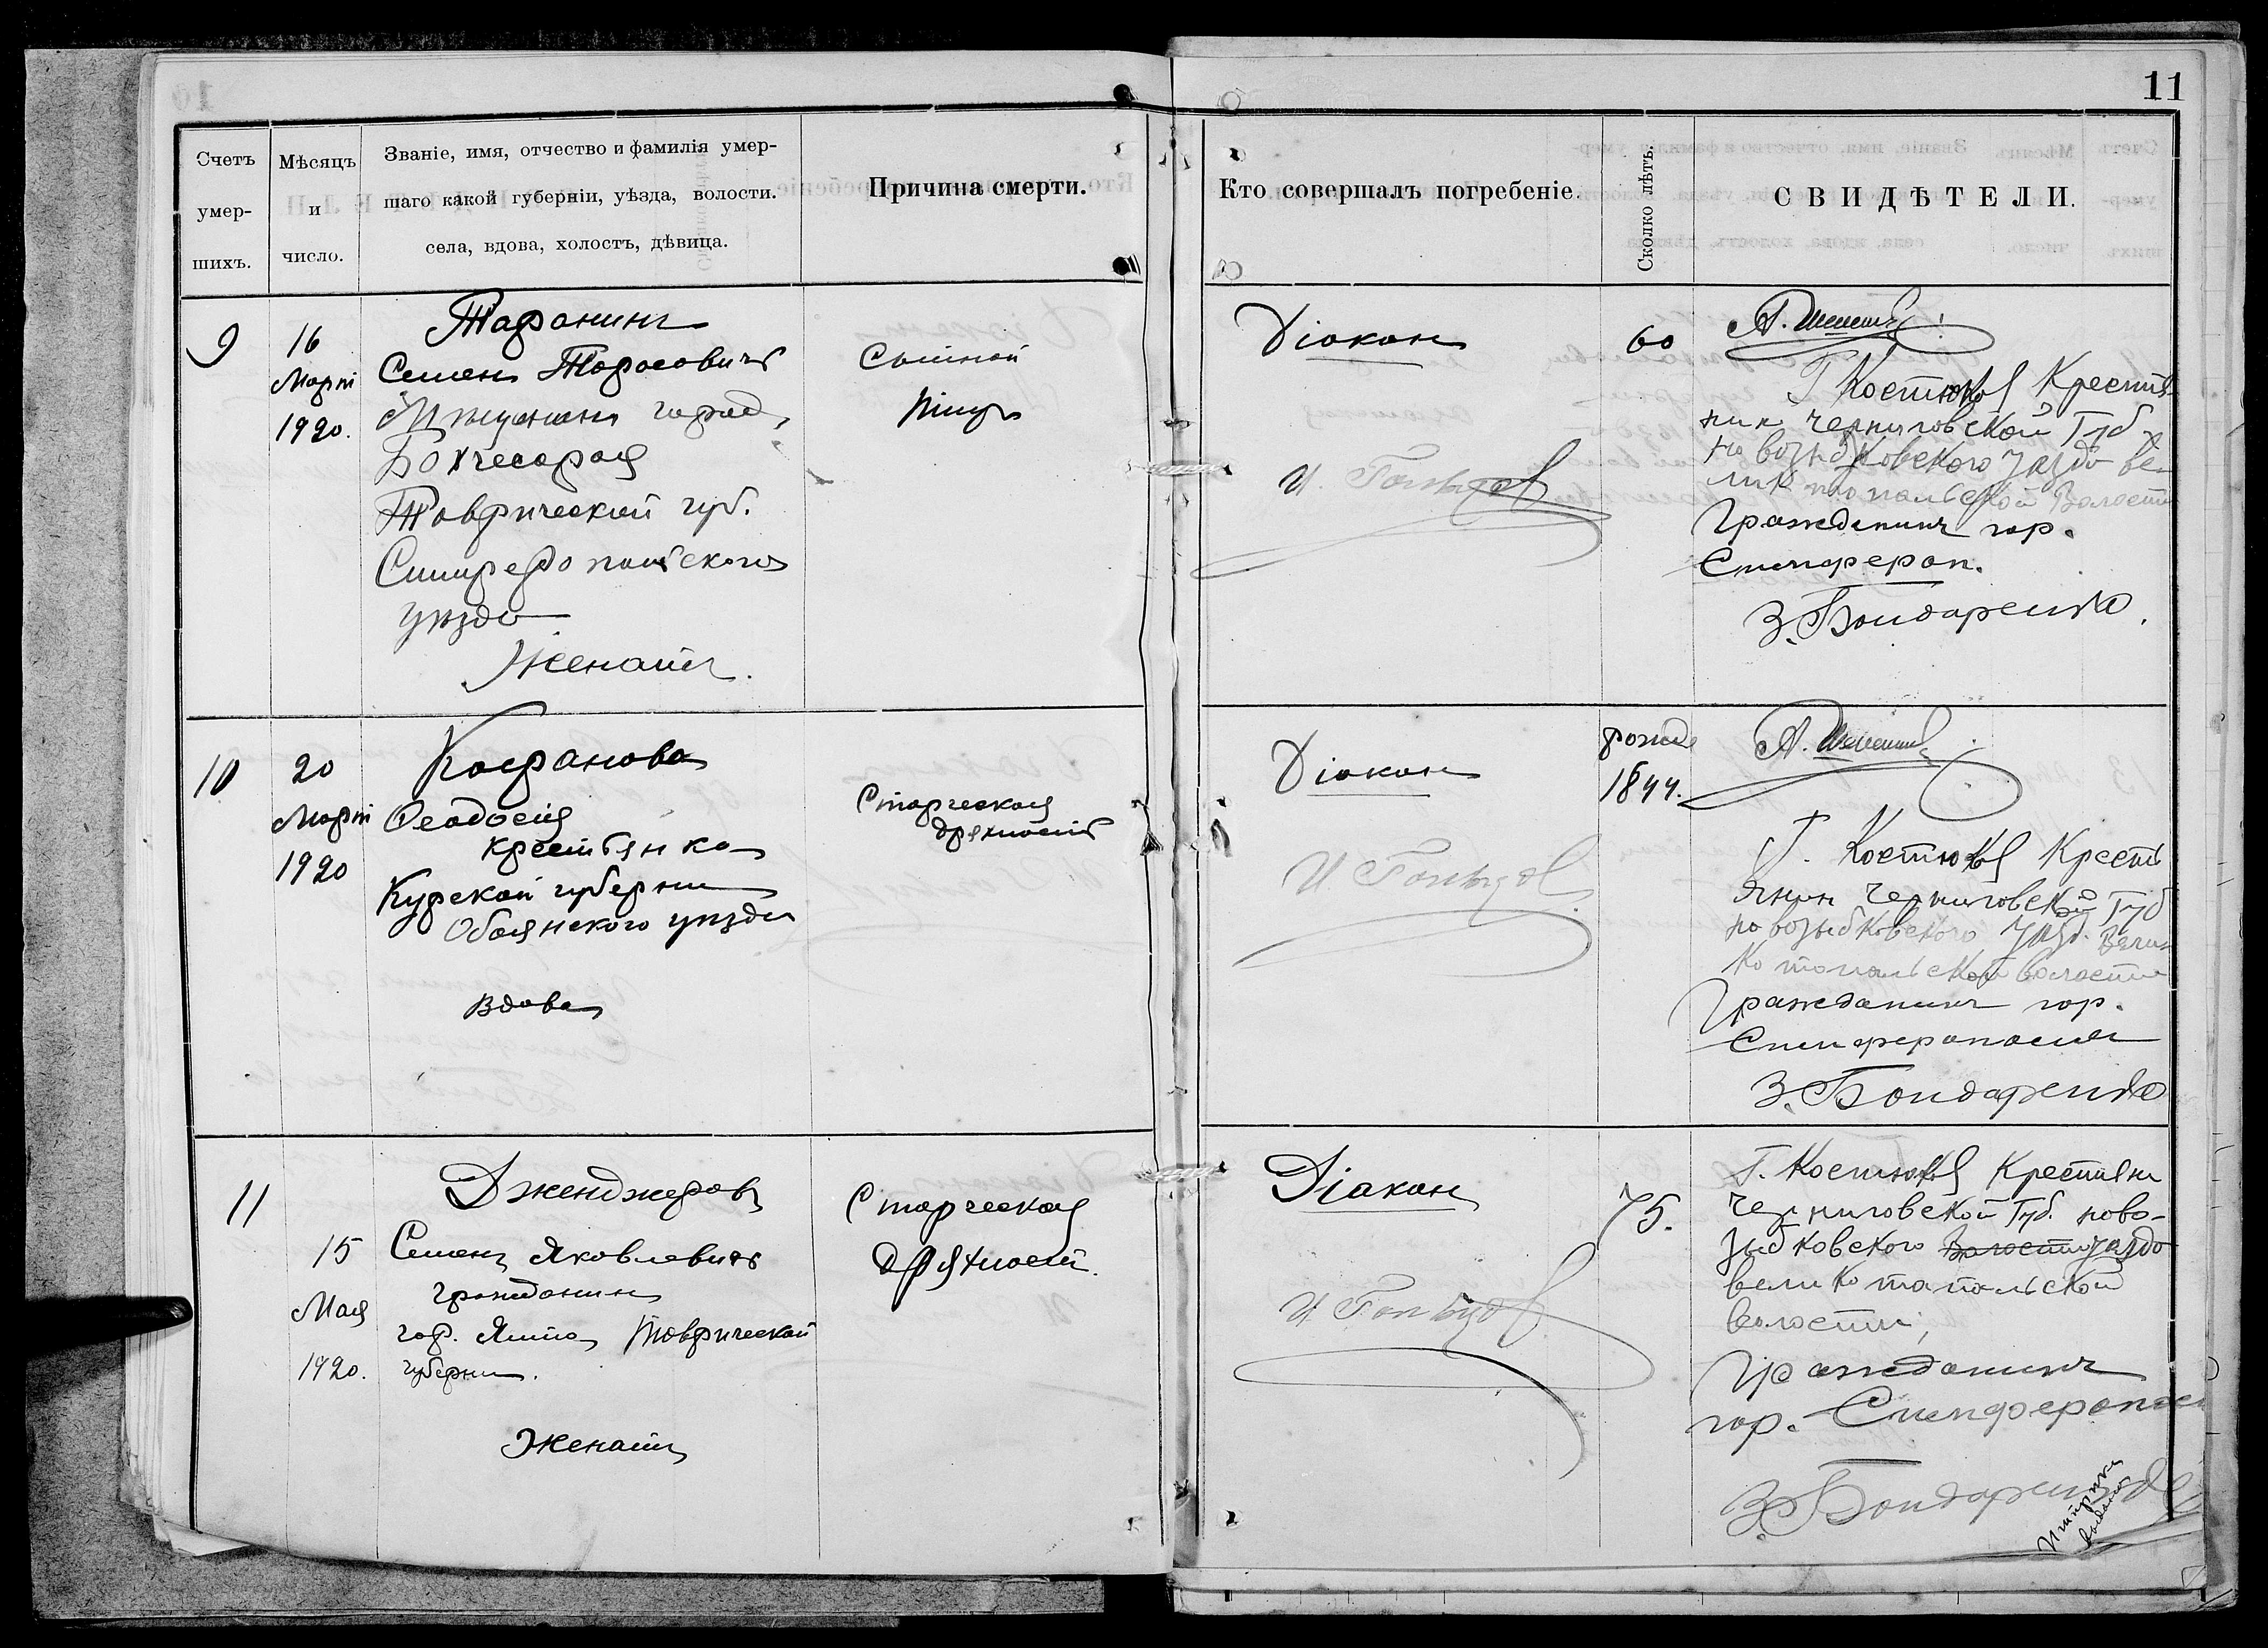 11
Счетъ умер-шихъ.
Мѣсяцъ и число.
Званіе, имя, отчество и фамилія умер-
шаго какой губерніи, уѣзда, волости.
села, вдова, холостъ, дѣвица.
Причина смерти.
Кто совершалъ погребеніе.
Сколко лѣтъ.
СВИДѢТЕЛИ.
9
16
Март
1920.
Семен Тарасовичъ
город
Бахчесарая
Таврический губ.
Симферопольского
уезда
Женатъ.
Сыпной
тиф
Діакон
60
Г Костюков Крестя-
нин Черниговской Губ
новозыбковского уезда ве-
ликотопальской Волости
Гражданинъ гор.
Симфероп.
З. Бондаренко.
10
20
Март
1920
Феодосия
крестьянка
Курской губернии
Обоянского уезда
Вдова
Старческая
дряхлость
Діакон
рожд
1844.
Г. Костюков Кресть
янин Черниговской Губ
новозыбковского уезд. Вели
котопальской волости
Гражданинъ гор.
Симферополя
З. Бондаренко
11
15
Мая
1920.
Дженджеровъ
Семенъ Яковлевичъ
гражданин
гор. Ялта, Таврической
губернии.
Женатъ
Старческая
дряхлость.
Діакон
75.
Г. Костюков Крестьянин
Черниговской Губ. ново-
зыбковского Волости уезда
великотапальской
волости,
Гражданинъ
гор. Симферополя
З. Бондаренко